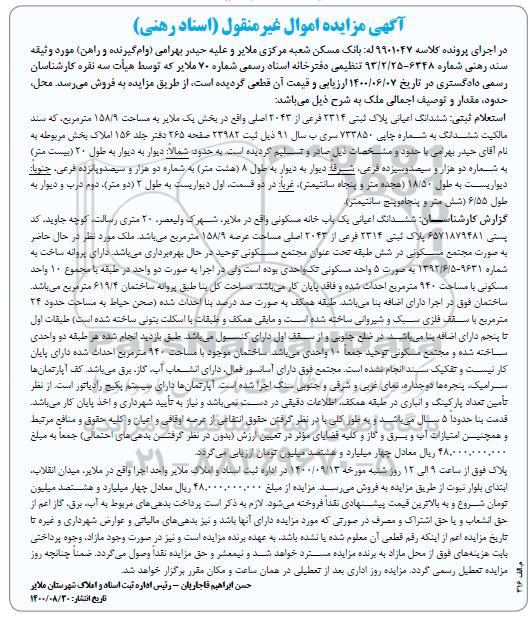 آگهی مزایده اموال غیرمنقول (اسناد رهنی)
در اجرای پرونده کلاسه ۹۹۰۱۰۴۷ له: بانک مسکن شعبه مرکزی ملایر و علیه حیدر بهرامی (وام‌گیرنده و راهن) مورد وثیقه
سند رهنی شماره ۶۳۴۸-۹۳/۲/۲۵ تنظیمی دفترخانه اسناد رسمی شماره ۷۰ ملایر که توسط هیأت سه نفره کارشناسان
رسمی دادگستری در تاریخ ۱۴۰۰/۰۶/۰۷ ارزیابی و قیمت آن قطعی گردیده است، از طریق مزایده به فروش می‌رسد. محل،
حدود، مقدار و توصیف اجمالی ملک به شرح ذیل می‌باشد:
استعلام ثبتی: ششدانگ اعیانی پلاک ثبتی ۲۳۱۴ فرعی از ۲۰۴۳ اصلی واقع در بخش یک ملایر به مساحت ۱۵۸/۹ مترمربع، که سند
مالکیت ششدانگ به شماره چاپی ۷۳۳۸۵۰ سری ب سال ۹۱ ذیل ثبت ۲۳۹۸۲ صفحه ۲۶۵ دفتر جلد ۱۵۶ املاک بخش مربوطه به
نام آقای حیدر بهرامی با حدود و مشخصات ذیل صادر و تسلیم گردیده است. به حدود: شمالاً: دیوار به دیوار به طول ۲۰ (بیست متر)
به شماره دو هزار و سیصدوسیزده فرعی، شرقاً: دیوار به دیوار به طول ۸ (هشت متر) به شماره دو هزار و سیصدوپانزده فرعی، جنوباً:
دیواریست به طول ۱۸/۵۰ (هجده متر و پنجاه سانتیمتر)، غرباً: در دو قسمت، اول دیواریست به طول ۲ (دو متر)، دوم درب و دیوار به
طول ۶/۵۵ (شش متر و پنجاه‌وپنج سانتیمتر).
گزارش کارشناسان: ششدانگ اعیانی یک باب خانه مسکونی واقع در ملایر، شهرک ولیعصر، ۲۰ متری رسالت، کوچه جاوید، کد
پستی ۶۵۷۱۸۷۹۴۸۱ پلاک ثبتی ۲۳۱۴ فرعی از ۲۰۴۳ اصلی مساحت عرصه ۱۵۸/۹ مترمربع می‌باشد. ملک مورد نظر در حال حاضر
به صورت مجتمع مسکونی در شش طبقه تحت عنوان مجتمع مسکونی توحید در حال بهره‌برداری می‌باشد. دارای پروانه ساخت به
شماره ۹۶۳۱-۱۳۹۲/۶/۵ به صورت ۵ واحد مسکونی تک‌واحدی بوده است ولی در اجرا به صورت دو واحد در طبقه با مجموع ۱۰ واحد
مسکونی با مساحت ۹۴۰ مترمربع احداث شده و فاقد پایان کار می‌باشد. مساحت کل بنا طبق پروانه ساختمان ۶۱۹/۴ مترمربع می‌باشد.
ساختمان فوق در اجرا دارای اضافه بنا می‌باشد. طبقه همکف به صورت صد درصد بنا احداث شده (صحن حیاط به مساحت حدود ۲۴
مترمربع با سقف فلزی سبک و شیروانی ساخته شده است و مابقی همکف و طبقات با اسکلت بتونی ساخته شده است) طبقات اول
تا پنجم دارای اضافه بنا می‌باشد. در ضلع جنوبی و از سقف اول دارای کنسول می‌باشد. طبق بازدید انجام شده هر طبقه دو واحدی
ساخته شده و مجتمع مسکونی توحید جمعاً ۱۰ واحدی می‌باشد. ساختمان موجود با مساحت ۹۴۰ مترمربع احداث شده دارای پایان
کار نیست و تفکیک سند انجام نشده است. مجتمع فوق دارای آسانسور فعال، دارای انشعاب آب، گاز، برق می‌باشد. کف آپارتمان‌ها
سرامیک، پنجره‌ها دوجداره، نمای غربی و شرقی و جنوبی سنگ اجرا شده است. آپارتمان‌ها دارای سیستم پکیج رادیاتور است. از نظر
تأمین تعداد پارکینگ و انباری در طبقه همکف، اطلاعات دقیقی در دست نمی‌باشد و نیاز به تأیید شهرداری و اخذ پایان کار می‌باشد.
قدمت بنا حدوداً ۵ سال می‌باشد و به طور کلی با در نظر گرفتن حقوق انتفاعی از عرصه اوقافی و اعیان و کلیه حقوق و منافع مرتبط
و همچنین امتیازات آب و برق و گاز و کلیه قضایای مؤثر در تعیین ارزش (بدون در نظر گرفتن بدهی‌های احتمالی) جمعاً به مبلغ
۴۸,۰۰۰,۰۰۰,۰۰۰ ریال معادل چهار میلیارد و هشتصد میلیون تومان ارزیابی می‌گردد.
پلاک فوق از ساعت ۹ الی ۱۲ روز شنبه مورخه ۱۴۰۰/۰۹/۱۳ در اداره ثبت اسناد و املاک ملایر واحد اجرا واقع در ملایر، میدان انقلاب،
ابتدای بلوار نبوت از طریق مزایده به فروش می‌رسد. مزایده از مبلغ ۴۸,۰۰۰,۰۰۰,۰۰۰ ریال معادل چهار میلیارد و هشتصد میلیون
تومان شروع و به بالاترین قیمت پیشنهادی نقداً فروخته می‌شود. لازم به ذکر است پرداخت بدهی‌های مربوط به آب، برق، گاز اعم از
حق انشعاب و یا حق اشتراک و مصرف در صورتی که مورد مزایده دارای آنها باشد و نیز بدهی‌های مالیاتی و عوارض شهرداری و غیره تا
تاریخ مزایده اعم از اینکه رقم قطعی آن معلوم شده یا نشده باشد، به عهده برنده مزایده است و نیز در صورت وجود مازاد، وجوه پرداختی
بابت هزینه‌های فوق از محل مازاد به برنده مزایده مسترد خواهد شد و نیمعشر و حق مزایده نقداً وصول می‌گردد. ضمناً چنانچه روز
مزایده تعطیل رسمی گردد، مزایده روز اداری بعد از تعطیلی در همان ساعت و مکان مقرر برگزار خواهد شد.
حسن ابراهیم قاجاریان – رئیس اداره ثبت اسناد و املاک شهرستان ملایر
تاریخ انتشار: ۱۴۰۰/۰۸/۳۰
م.الف ۳۱۶